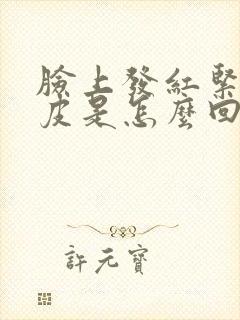 臉上發紅緊
皮是怎麼回
許元寶